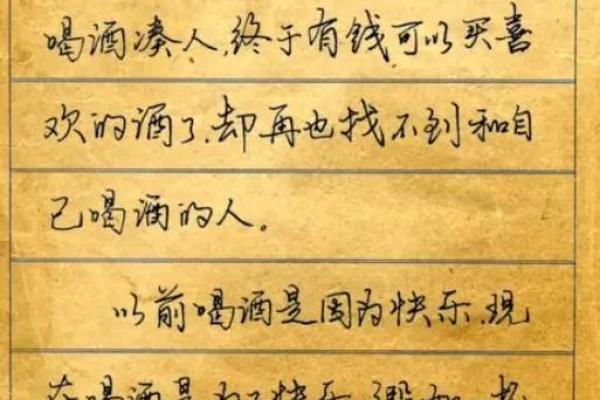 喝酒凑人,终于有钱可以买喜
欢的酒了,却再也找不到和自
己喝酒的人。
以前喝酒是因为快乐,现
在喝酒是为了快乐